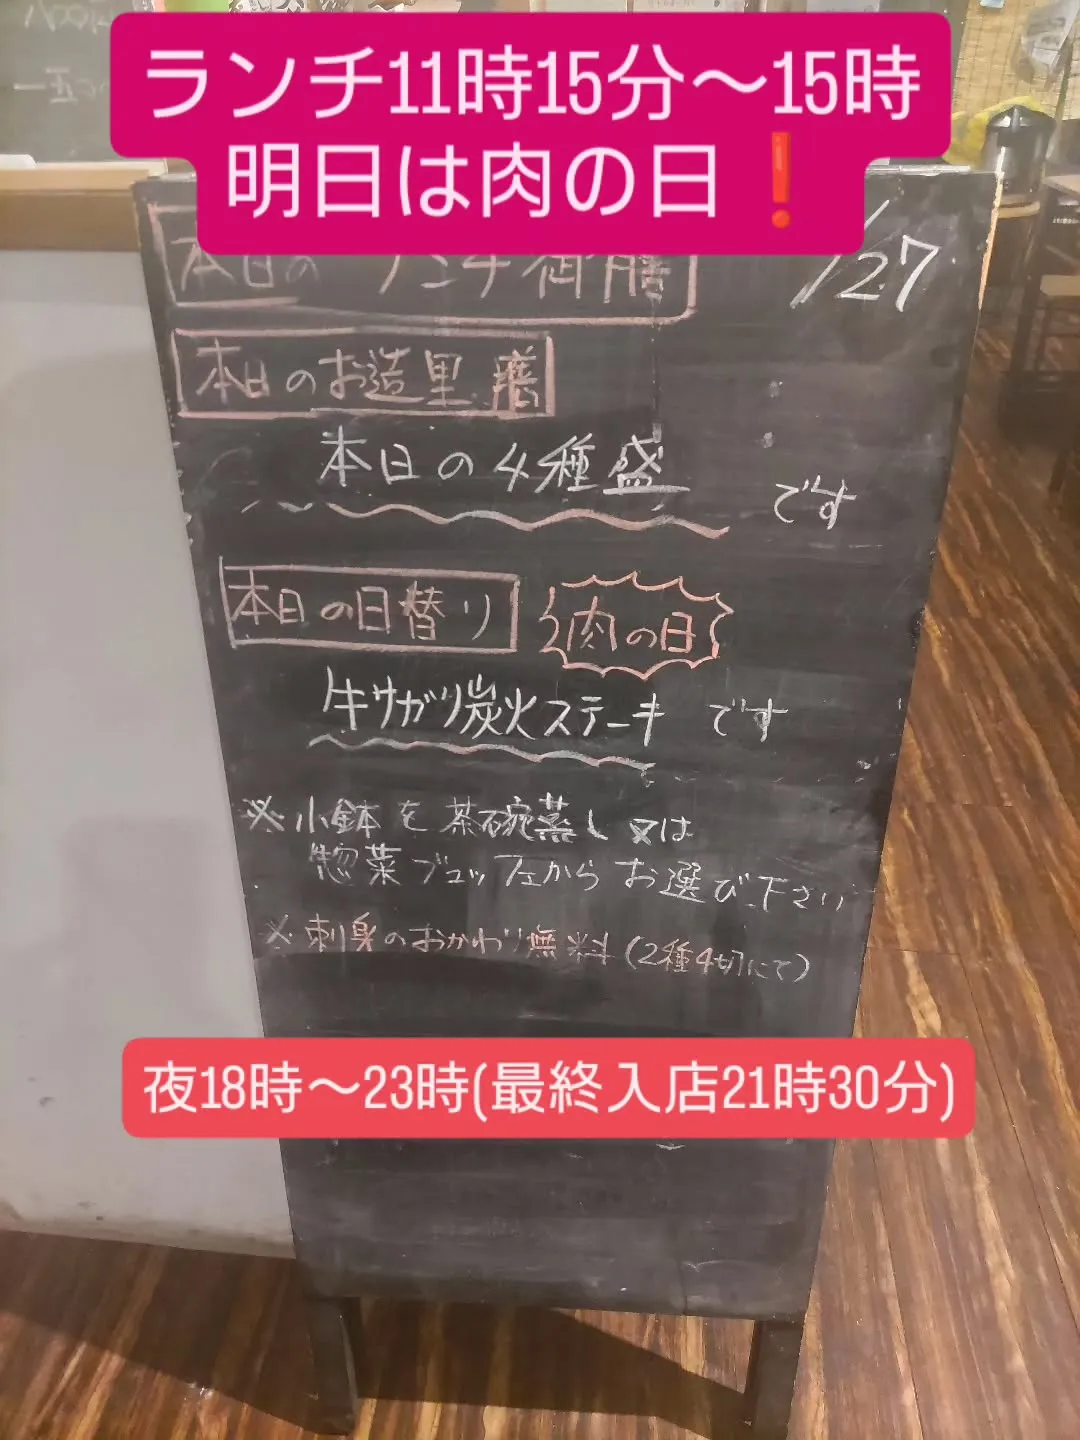 ランチ11時15分～15時
明日は肉の日❗
本日の ランチ御膳
/27
本日のお造里膳
本日の4種盛 です
本日の日替り 肉の日
牛サガリ炭火ステーキ です
※小鉢を茶碗蒸し又は
惣菜ブュッフェからお選び下さい
※刺身のおかわり無料(2種4切にて)
夜18時～23時(最終入店21時30分)